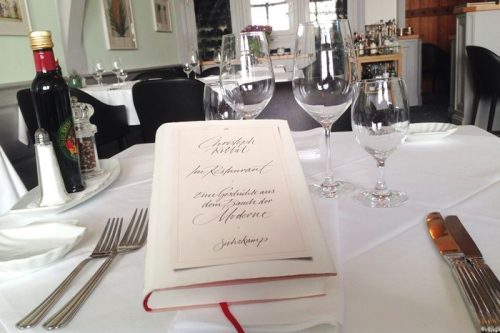 Christoph
Ribbat
Im Restaurant
Eine Geschichte aus
dem Bauch der
Moderne
Suhrkamp